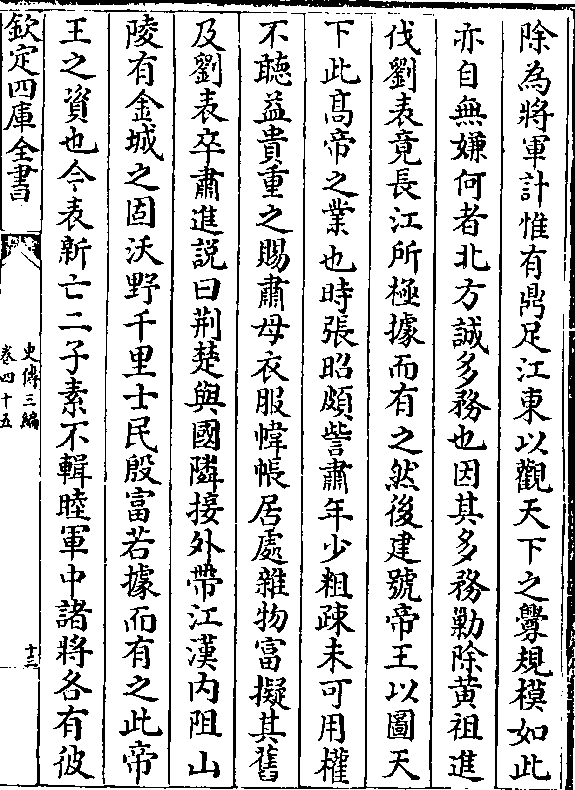 除為將軍計惟有鼎足江東以觀天下之釁規模如此
亦自無嫌何者北方誠多務也因其多務勦除黄祖進
伐劉表竟長江所極據而有之然後建號帝王以圖天
下此髙帝之業也時張昭頗訾肅年少粗疎未可用權
不聽益貴重之賜肅母衣服幃帳居處雜物富擬其舊
及劉表卒肅進説曰荆楚與國隣接外帶江漢内阻山
陵有金城之固沃野千里士民殷富若據而有之此帝
王之資也今表新亡二子素不輯睦軍中諸將各有彼
欽定四庫全書
史傳三編
卷四十五
十三